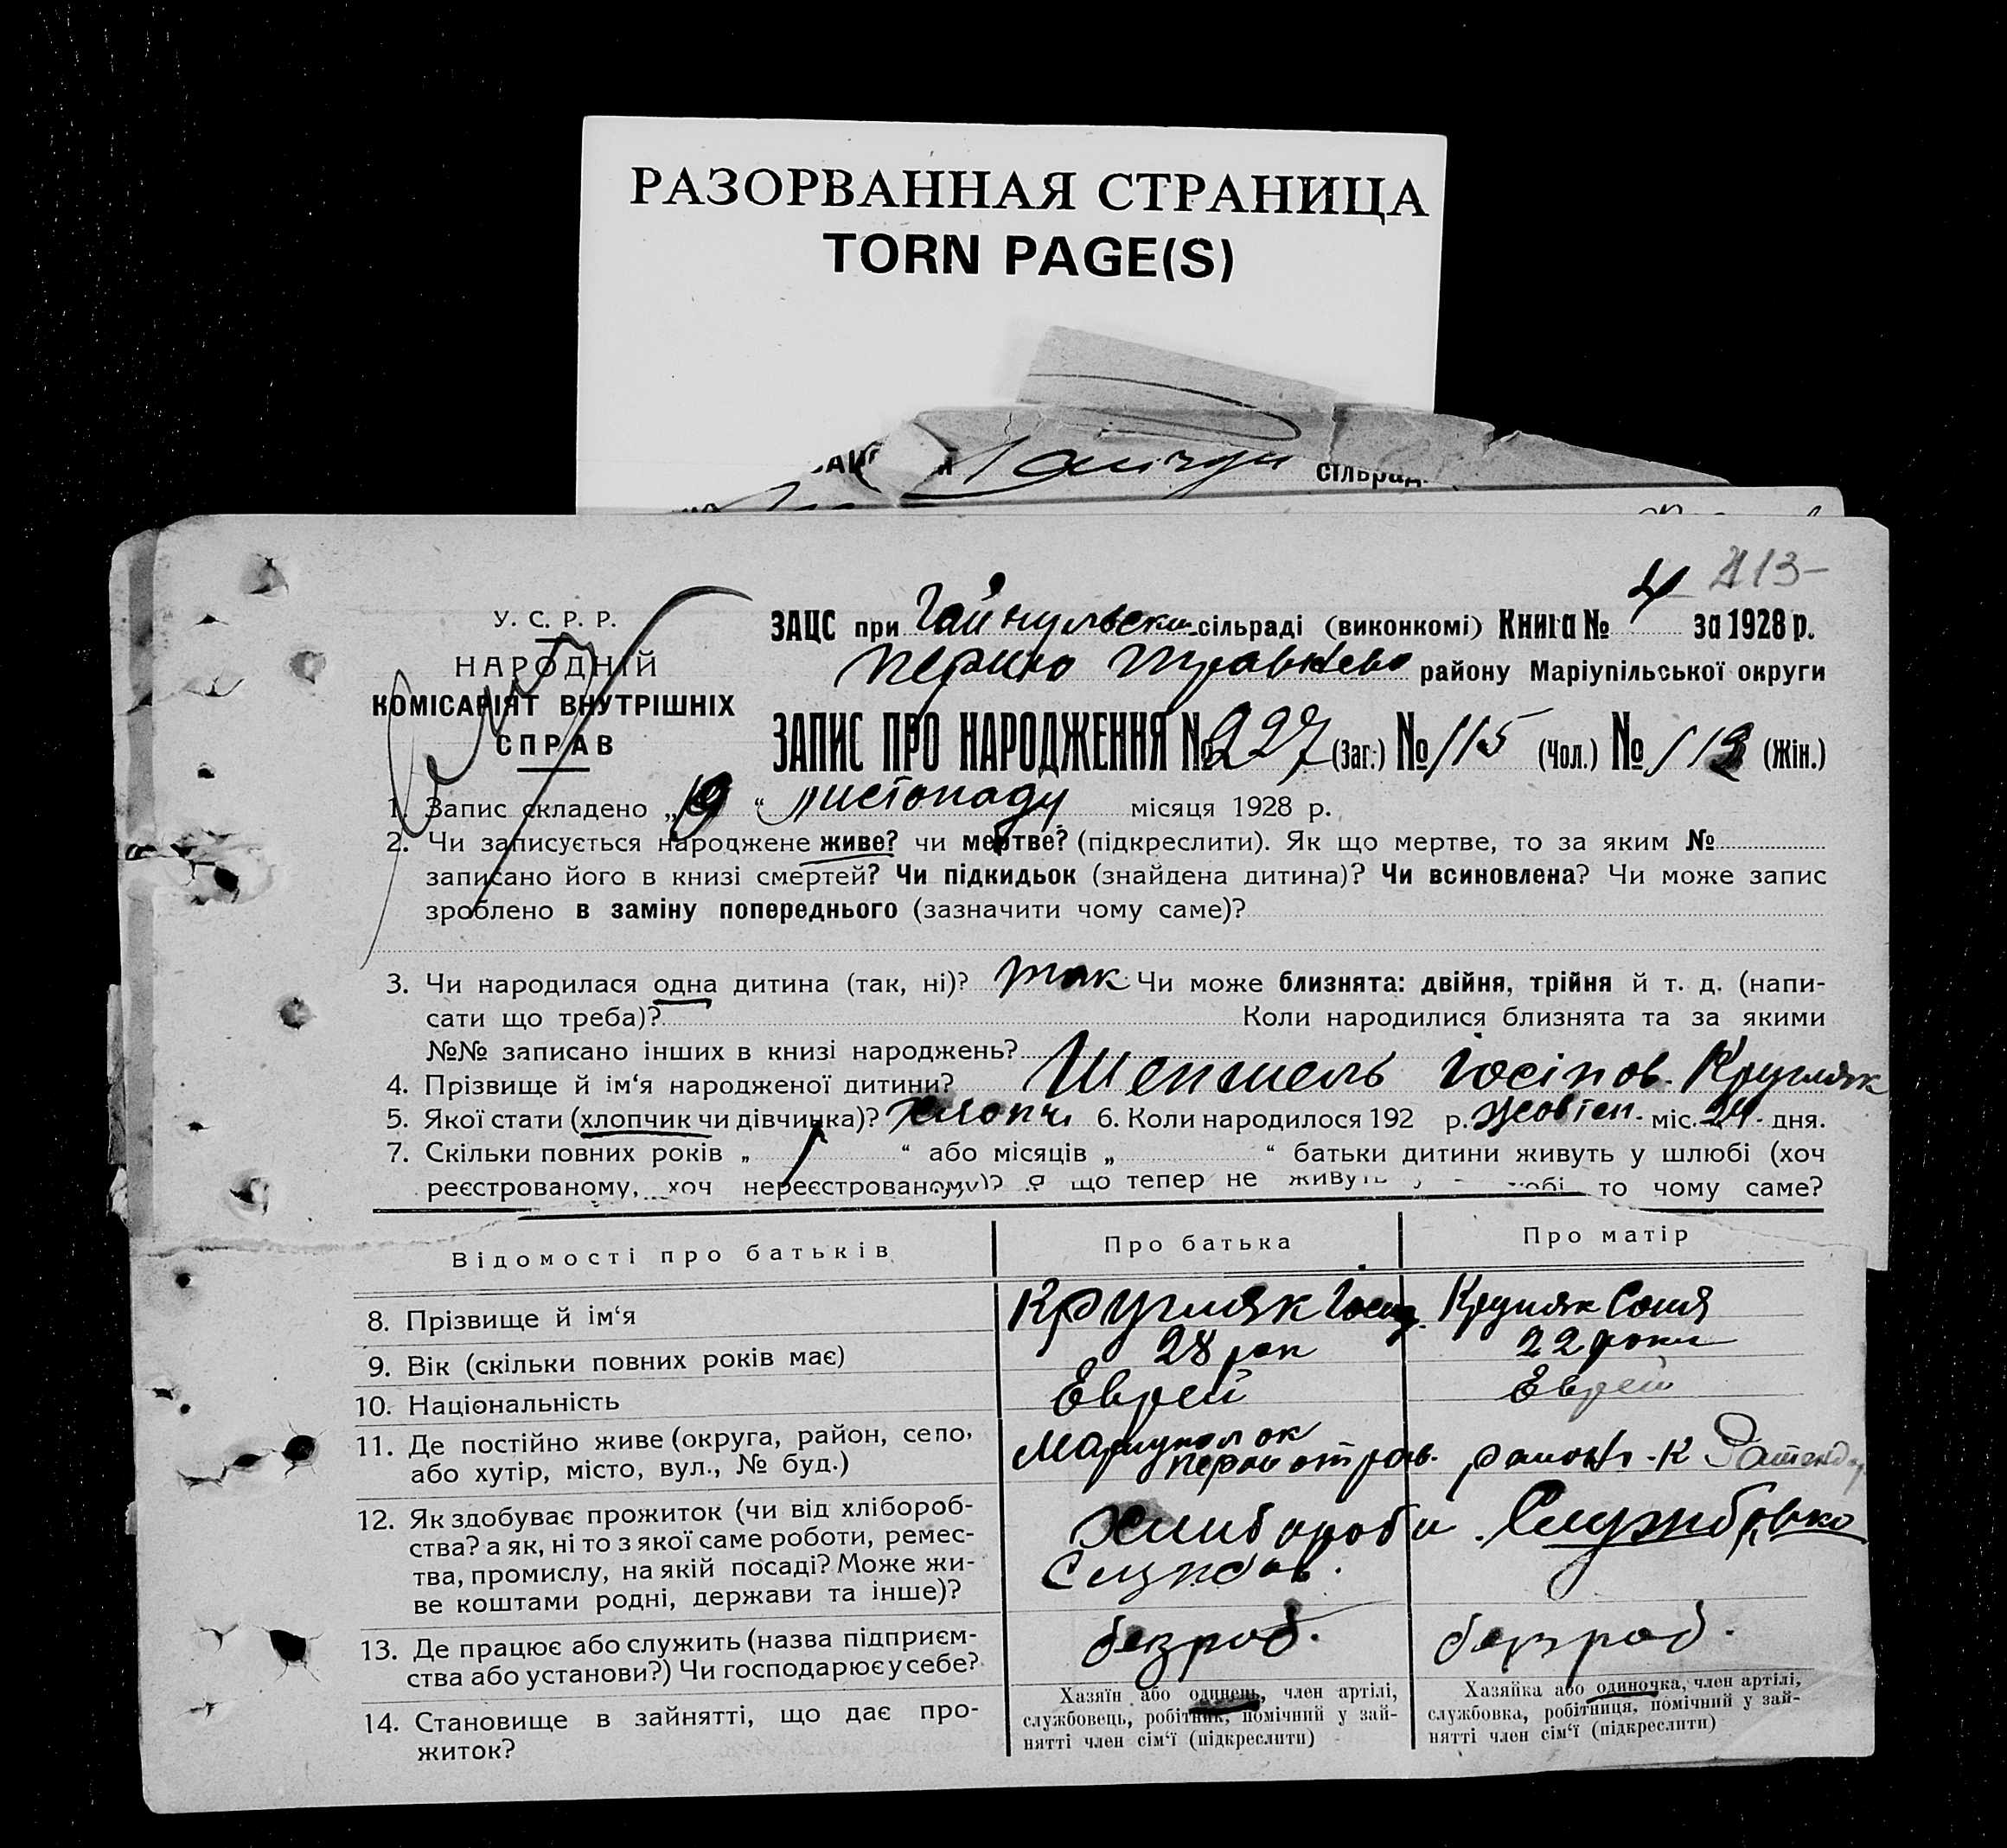 РАЗОРВАННАЯ СТРАНИЦА
TORN PAGE(S)
сільрад
4 113-
У. С. Р. Р.
НАРОДНІЙ
КОМІСАРІЯТ ВНУТРІШНІХ
СПРАВ
ЗАЦС при сільраді (виконкомі) Книга № 4 за 1928 р.
району Маріупільської округи
ЗАПИС ПРО НАРОДЖЕННЯ № 227 (Заг.) № 115 (Чол.) № 113 (Жін.)
1. Запис складено „ 9 “ листопаду місяця 1928 р.
2. Чи записується народжене живе? чи мертве? (підкреслити). Як що мертве, то за яким №
записано його в книзі смертей? Чи підкидьок (знайдена дитина)? Чи всиновлена? Чи може запис
зроблено в заміну попереднього (зазначити чому саме)?
3. Чи народилася одна дитина (так, ні)? так Чи може близнята: двійня, трійня й т. д. (напи-
сати що треба)? Коли народилися близнята та за якими
№№ записано інших в книзі народжень?
4. Прізвище й ім‘я народженої дитини? Шепшель Іосіпов. Кругляк
5. Якої стати (хлопчик чи дівчинка)? хлопч. 6. Коли народилося 192 р. жовтен. міс. 24 дня.
7. Скільки повних років „ 1 “ або місяців „ “ батьки дитини живуть у шлюбі (хоч
реєстрованому, хоч нереєстрованому)? Я що тепер не живуть у то чому саме?
Відомості про батьків Про батька Про матір
8. Прізвище й ім‘я Кругляк Кругляк Соня
9. Вік (скільки повних років має) 28 рок 22 роки
10. Національність Еврей Еврей
11. Де постійно живе (округа, район, село,
або хутір, місто, вул., № буд.)
12. Як здобуває прожиток (чи від хлібороб-
ства? а як, ні то з якої саме роботи, ремес-
тва, промислу, на якій посаді? Може жи-
ве коштами родні, держави та інше)?
Службов. Службовка
13. Де працює або служить (назва підприєм-
ства або установи?) Чи господарює у себе?
безроб. безроб.
14. Становище в зайнятті, що дає про-
житок?
Хазяїн або одинець, член артілі,
службовець, робітник, помічний у зай-
нятті член сім‘ї (підкреслити)
Хазяйка або одиночка, член артілі,
службовка, робітниця, помічний у зай-
нятті член сім‘ї (підкреслити)